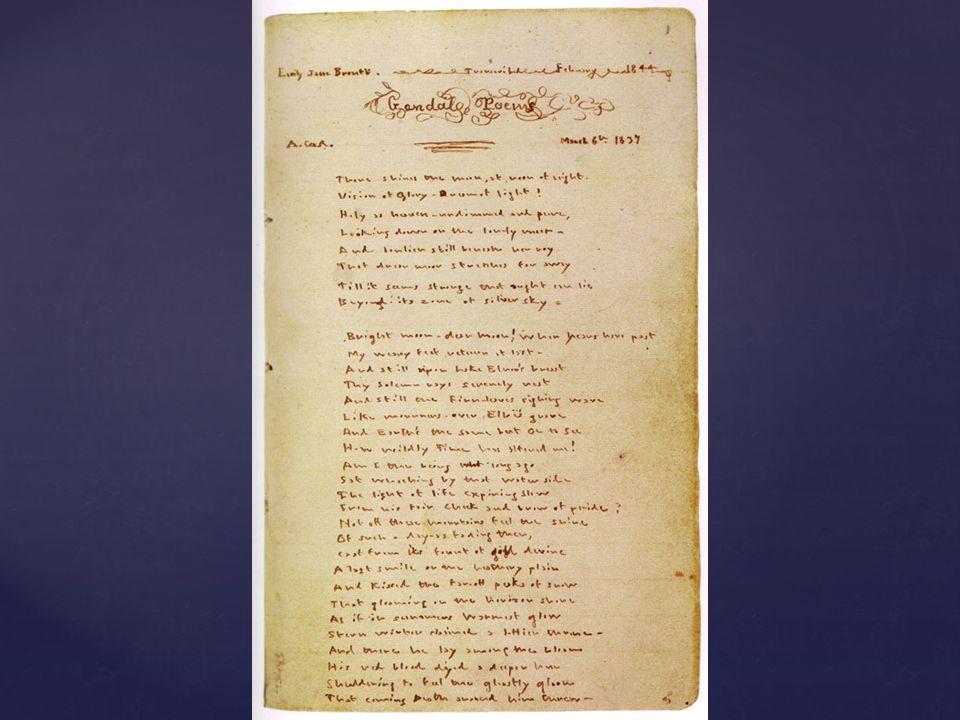 1
Emily Jane Brontë. Transcribed February 1844
Gondal Poems
A. G. A. March 6th 1837
There shines the moon, at noon of night.
Vision of Glory - Dream of light!
Holy as heaven - undimmed and pure,
Looking down on the lonely moor -
And lonlier still beneath her ray
That drear moor stretches far away
Till it seems strange that aught can lie
Beyond its zone of silver sky -
Bright moon - dear moon! when years have past
My weary feet return at last -
And still upon Lake Elnor's breast
Thy solemn rays serenely rest
And still the Fernleaves sighing wave
Like mourners over Elbë's grave
And Earth's the same but Oh to see
How wildly Time has altered me!
Am I the being who long ago
Sat watching by that water side
The light of life expiring slow
From his fair cheek and brow of pride?
Not oft these mountains feel the shine
Of such a day - as fading then,
Cast from its fount of gold devine
A last smile on the heathery plain
And kissed the far-off peaks of snow
That gleaming on the horizon shone
As if in summers warmest glow
Stern winter claimed a loftier throne -
And there he lay among the bloom
His red blood dyed a deeper hue
Shuddering to feel the ghostly gloom
That coming Death around him threw -